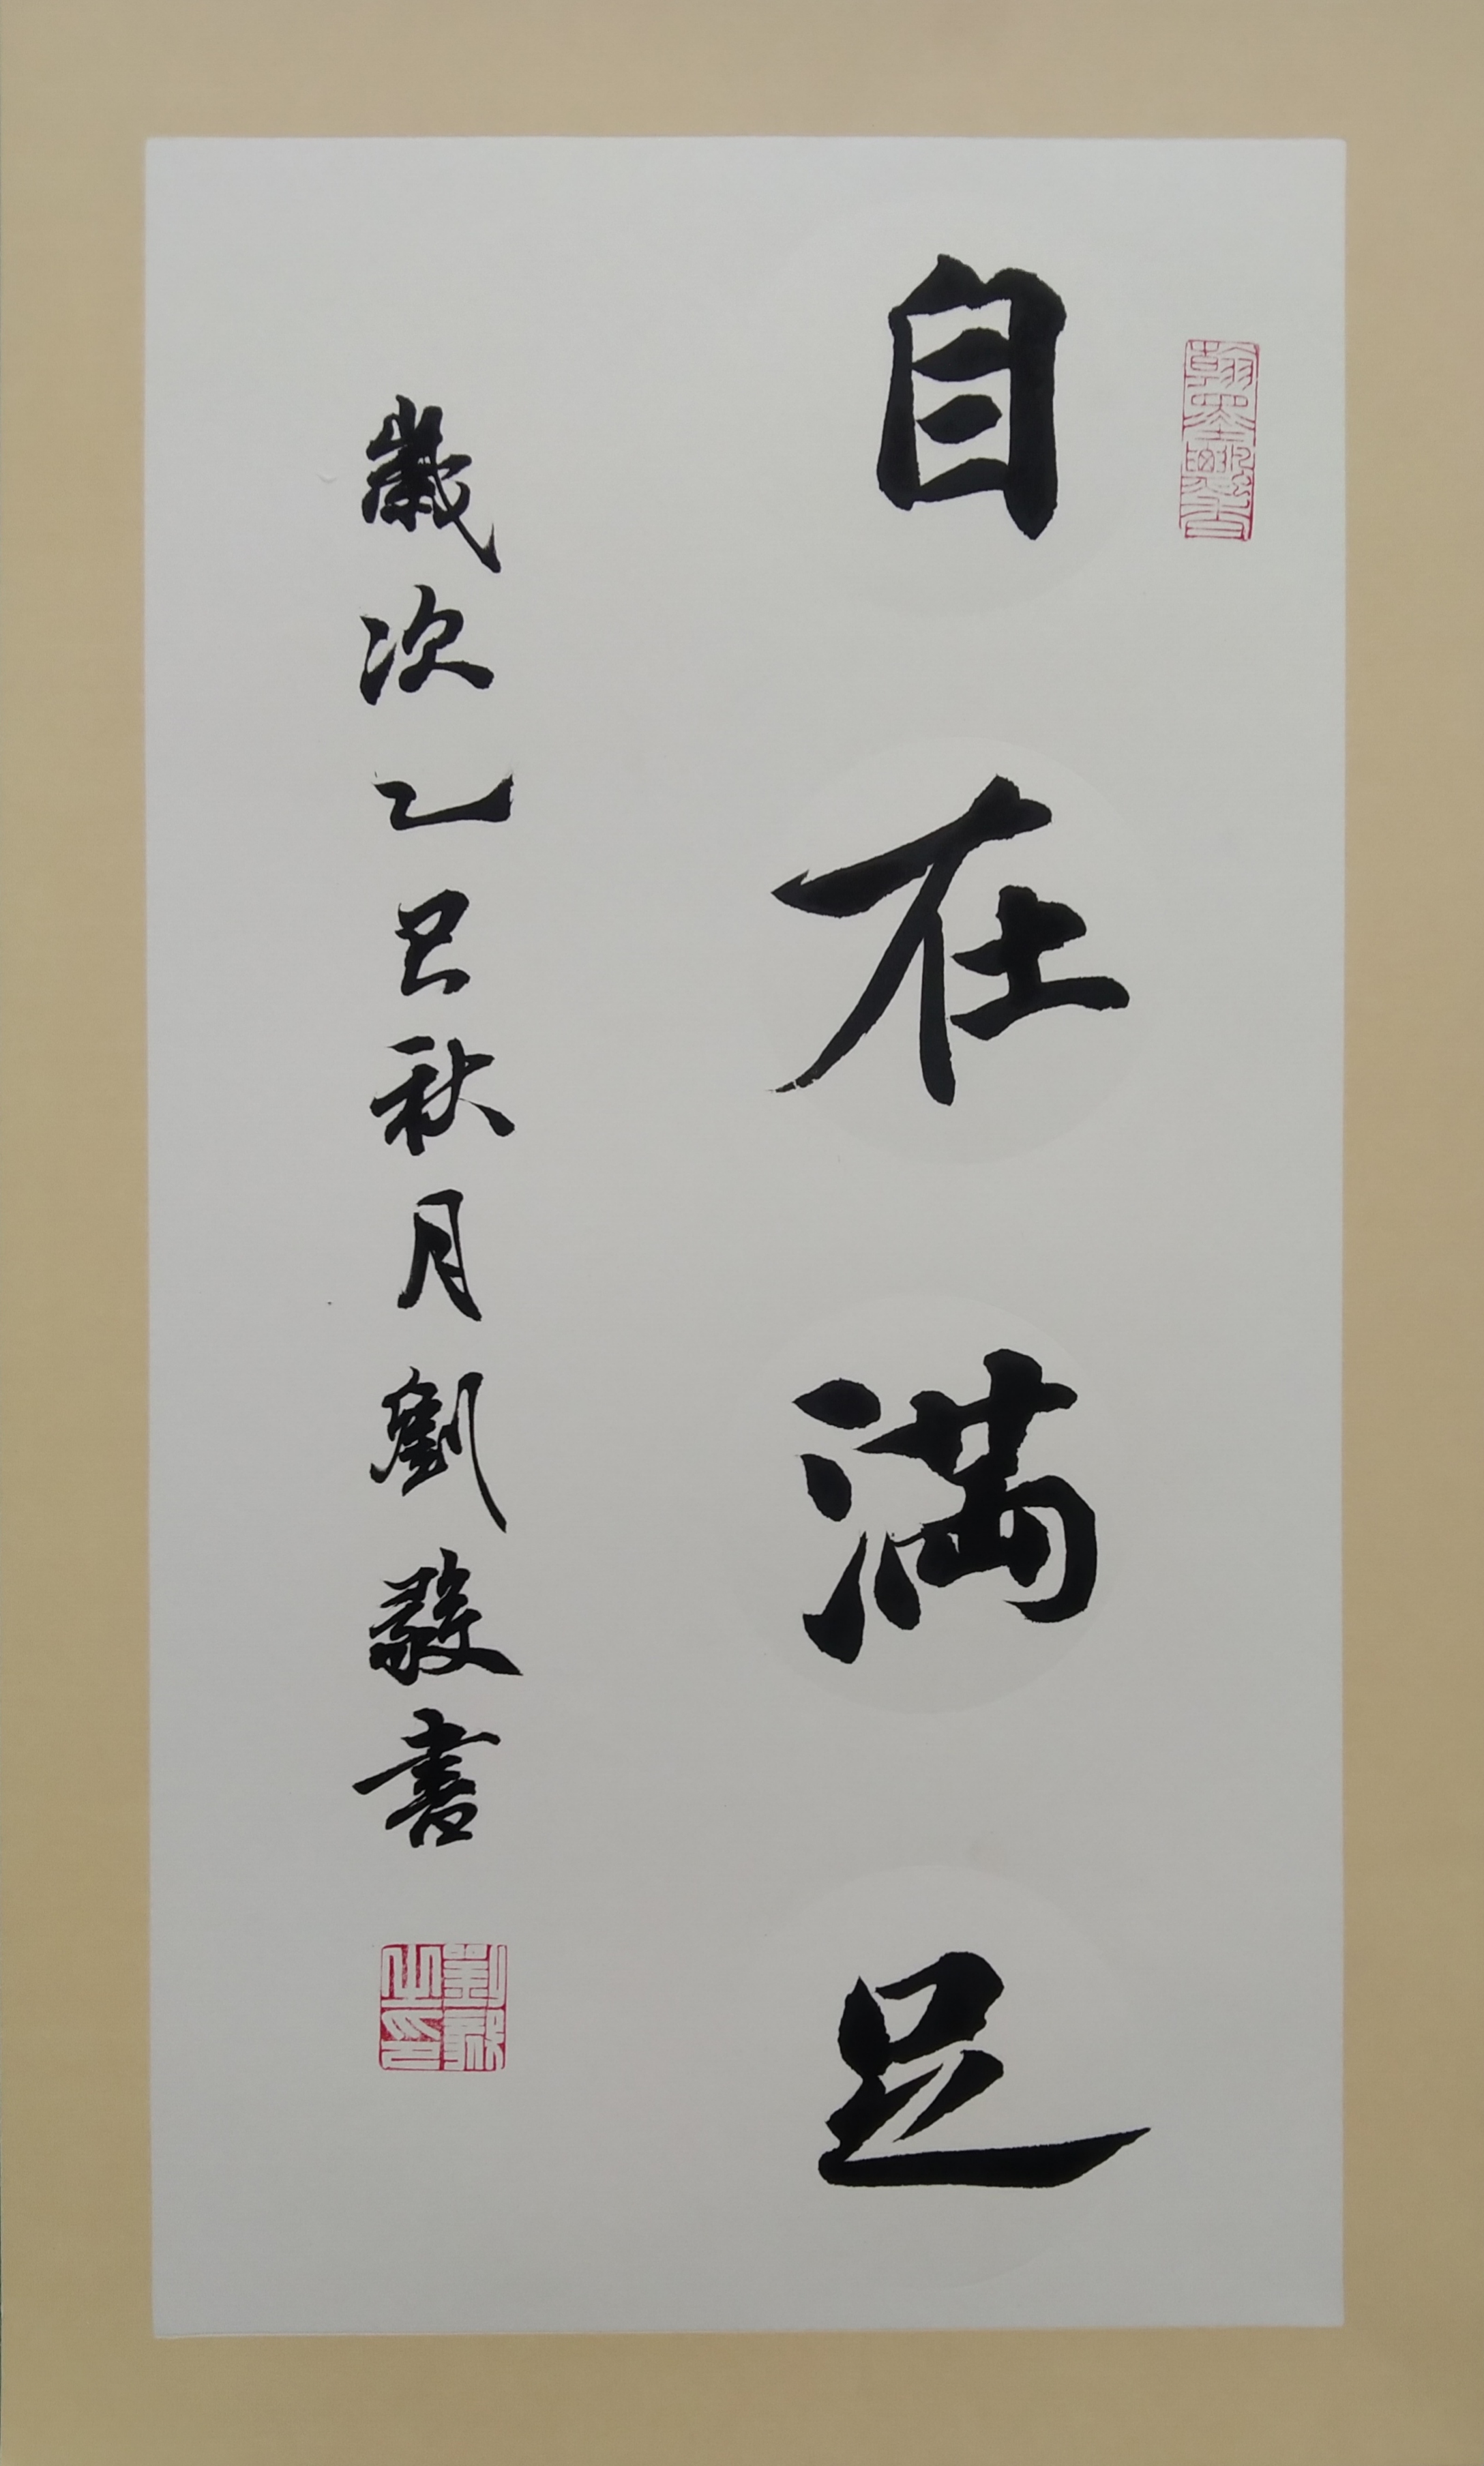 自在満足
歲次乙巳秋月劉毅書
劉毅之印